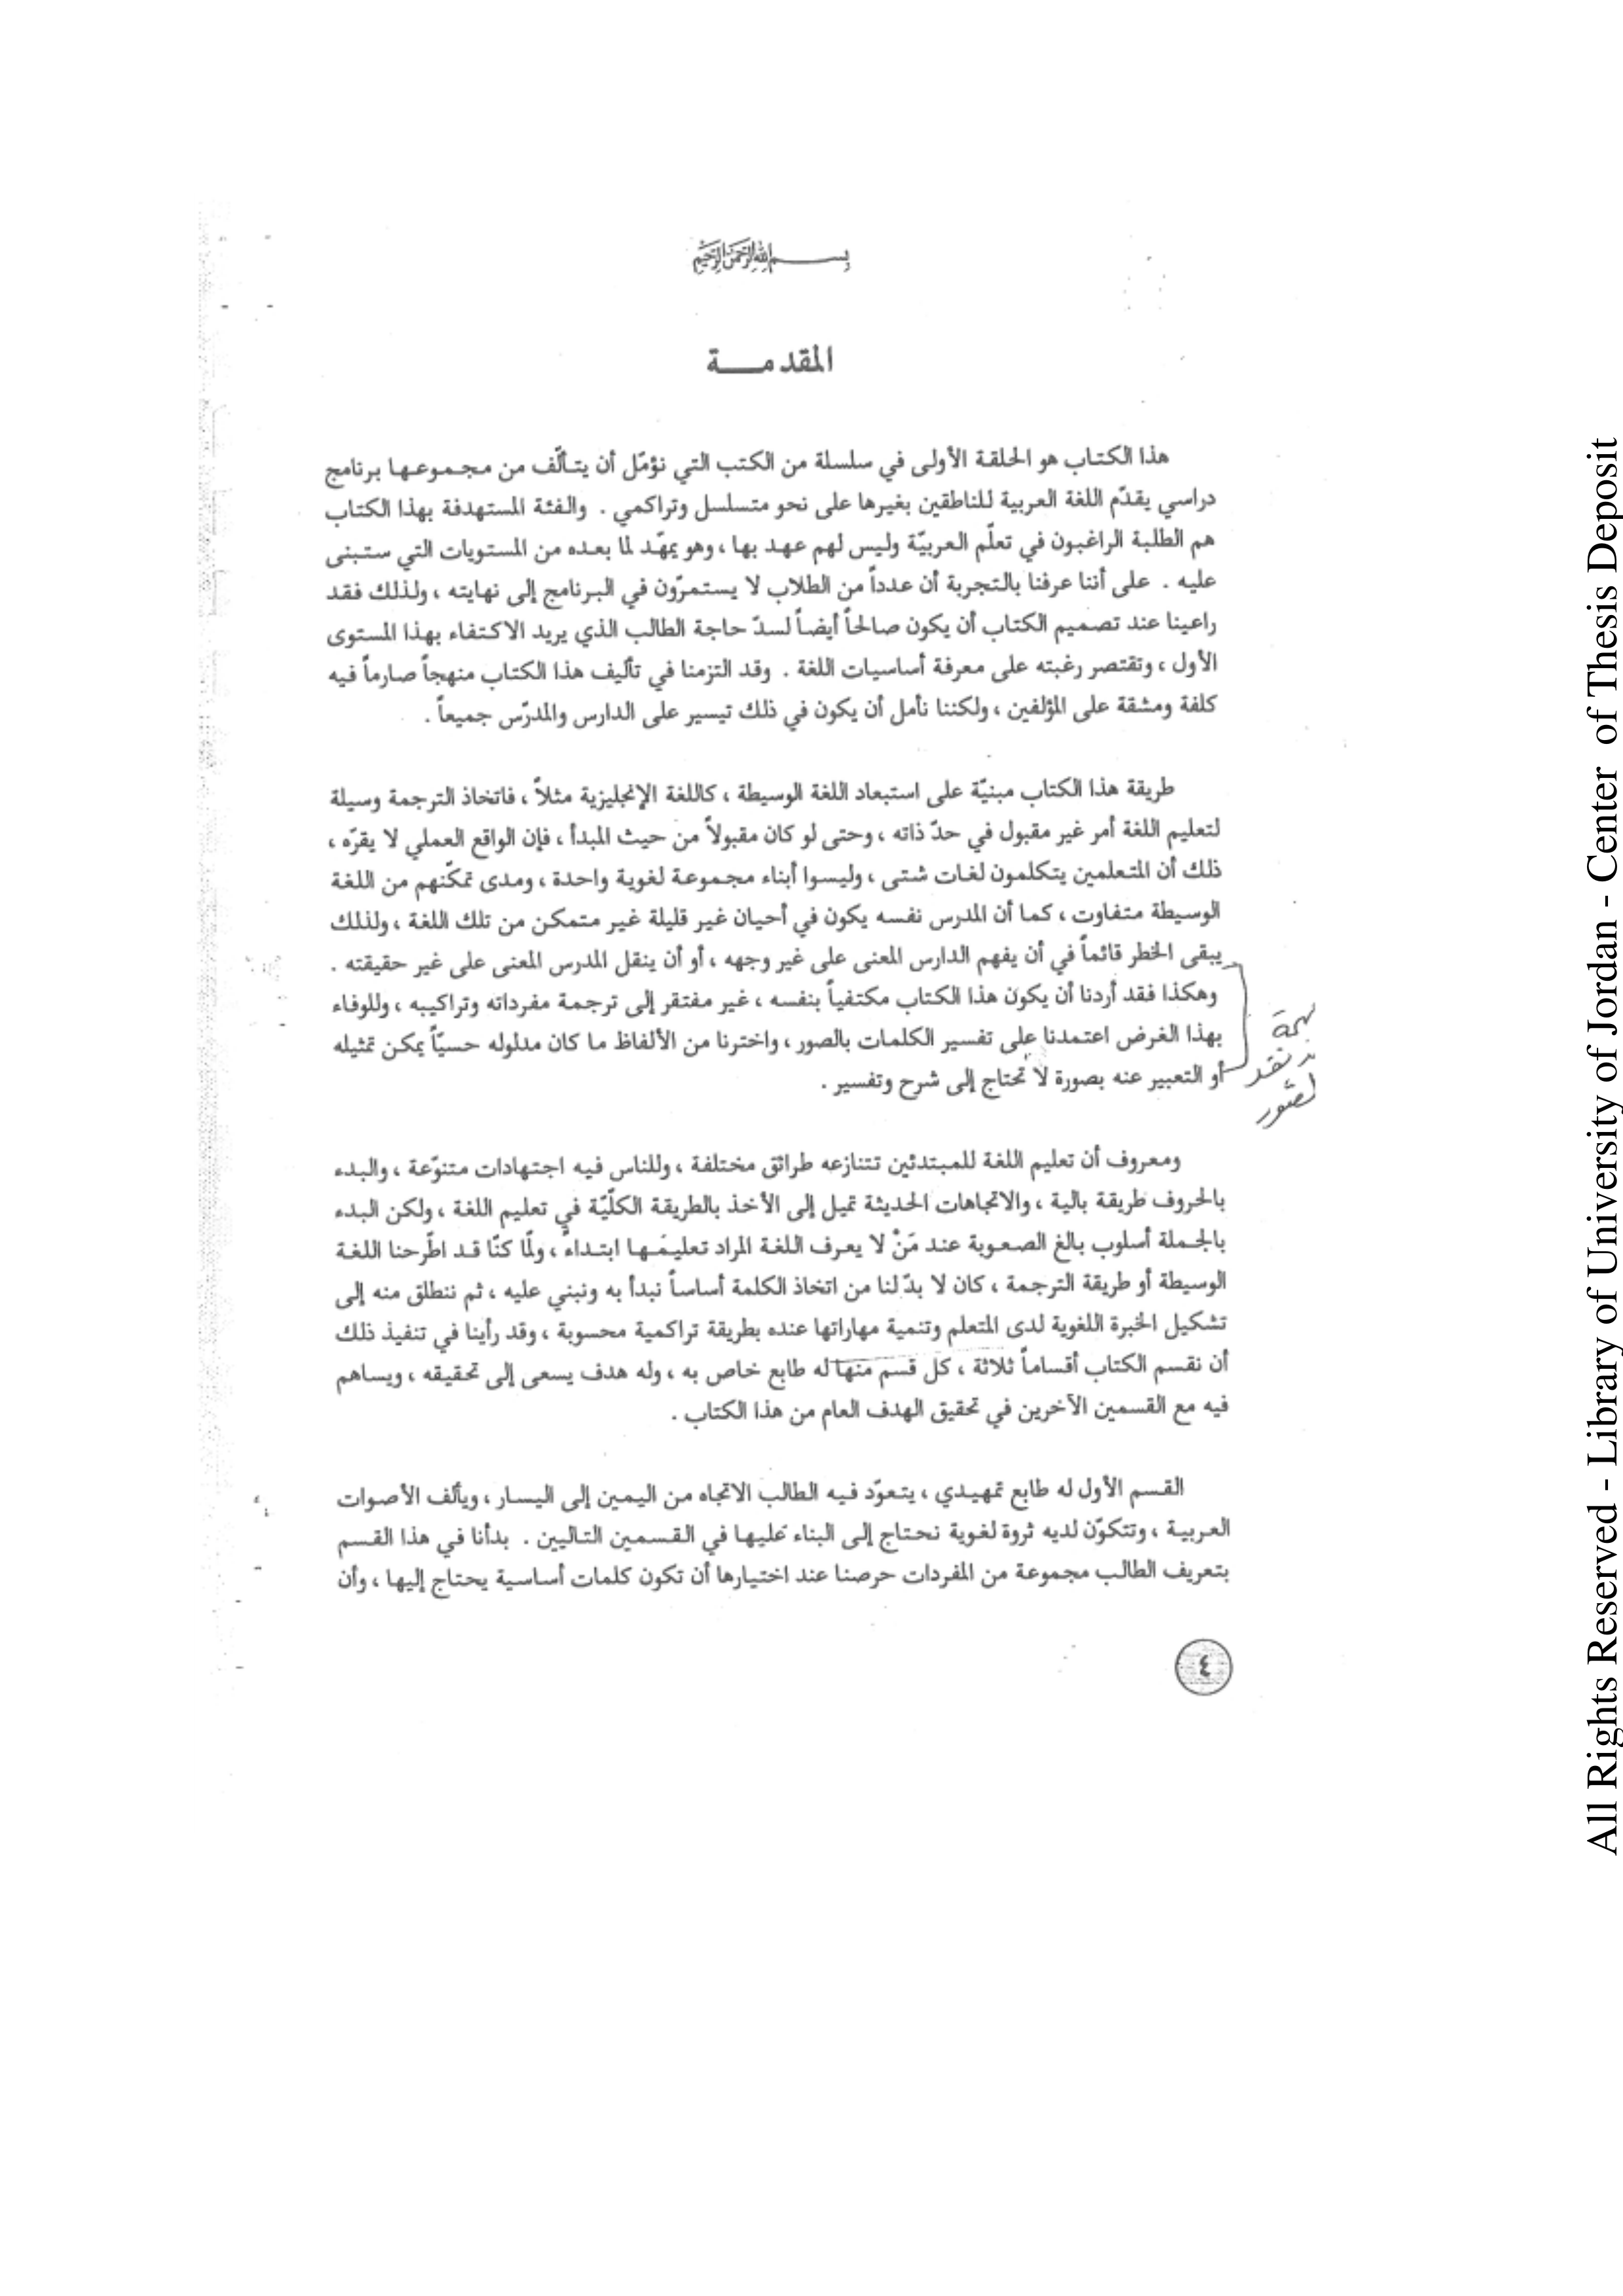 بسم الله الرحمن الرحيم
المقدمة
هذا الكتاب هو الحلقة الأولى في سلسلة من الكتب التي نؤمّل أن يتألّف من مجموعها برنامج
دراسي يقدّم اللغة العربية للناطقين بغيرها على نحو متسلسل وتراكمي . والفئة المستهدفة بهذا الكتاب
هم الطلبة الراغبون في تعلّم العربيّة وليس لهم عهد بها ، وهو يمهّد لما بعده من المستويات التي ستبنى
عليه . على أننا عرفنا بالتجربة أن عدداً من الطلاب لا يستمرّون في البرنامج إلى نهايته ، ولذلك فقد
راعينا عند تصميم الكتاب أن يكون صالحاً أيضاً لسدّ حاجة الطالب الذي يريد الاكتفاء بهذا المستوى
الأول ، وتقتصر رغبته على معرفة أساسيات اللغة . وقد التزمنا في تأليف هذا الكتاب منهجاً صارماً فيه
كلفة ومشقة على المؤلفين ، ولكننا نأمل أن يكون في ذلك تيسير على الدارس والمدرّس جميعاً .
طريقة هذا الكتاب مبنيّة على استبعاد اللغة الوسيطة ، كاللغة الإنجليزية مثلاً ، فاتخاذ الترجمة وسيلة
لتعليم اللغة أمر غير مقبول في حدّ ذاته ، وحتى لو كان مقبولاً من حيث المبدأ ، فإن الواقع العملي لا يقرّه ،
ذلك أن المتعلمين يتكلمون لغات شتى ، وليسوا أبناء مجموعة لغوية واحدة ، ومدى تمكّنهم من اللغة
الوسيطة متفاوت ، كما أن المدرس نفسه يكون في أحيان غير قليلة غير متمكن من تلك اللغة ، ولذلك
يبقى الخطر قائماً في أن يفهم الدارس المعنى على غير وجهه ، أو أن ينقل المدرس المعنى على غير حقيقته .
وهكذا فقد أردنا أن يكون هذا الكتاب مكتفياً بنفسه ، غير مفتقر إلى ترجمة مفرداته وتراكيبه ، وللوفاء
بهذا الغرض اعتمدنا على تفسير الكلمات بالصور ، واخترنا من الألفاظ ما كان مدلوله حسيّاً يمكن تمثيله
أو التعبير عنه بصورة لا تحتاج إلى شرح وتفسير .
ومعروف أن تعليم اللغة للمبتدئين تتنازعه طرائق مختلفة ، وللناس فيه اجتهادات متنوّعة ، والبدء
بالحروف طريقة بالية ، والاتجاهات الحديثة تميل إلى الأخذ بالطريقة الكلّيّة في تعليم اللغة ، ولكن البدء
بالجملة أسلوب بالغ الصعوبة عند مَنْ لا يعرف اللغة المراد تعليمَها ابتداءً ، ولمّا كنّا قد اطّرحنا اللغة
الوسيطة أو طريقة الترجمة ، كان لا بدّ لنا من اتخاذ الكلمة أساساً نبدأ به ونبني عليه ، ثم ننطلق منه إلى
تشكيل الخبرة اللغوية لدى المتعلم وتنمية مهاراتها عنده بطريقة تراكمية محسوبة ، وقد رأينا في تنفيذ ذلك
أن نقسم الكتاب أقساماً ثلاثة ، كل قسم منها له طابع خاص به ، وله هدف يسعى إلى تحقيقه ، ويساهم
فيه مع القسمين الآخرين في تحقيق الهدف العام من هذا الكتاب .
القسم الأول له طابع تمهيدي ، يتعوّد فيه الطالب الاتجاه من اليمين إلى اليسار ، ويألف الأصوات
العربية ، وتتكوّن لديه ثروة لغوية نحتاج إلى البناء عليها في القسمين التاليين . بدأنا في هذا القسم
بتعريف الطالب مجموعة من المفردات حرصنا عند اختيارها أن تكون كلمات أساسية يحتاج إليها ، وأن
٤
All Rights Reserved - Library of University of Jordan - Center of Thesis Deposit